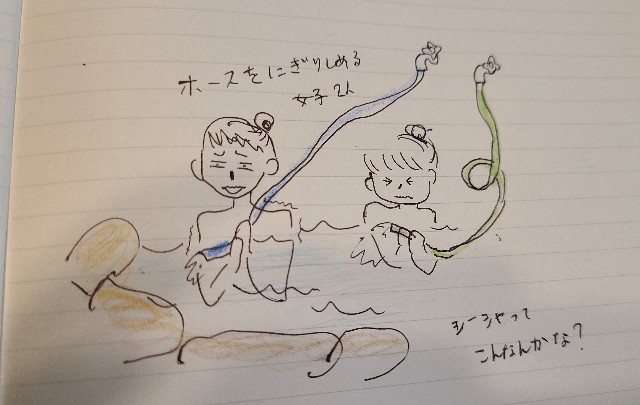 ホースをにぎりしめる
女子2人
シーシャって
こんなんかな?